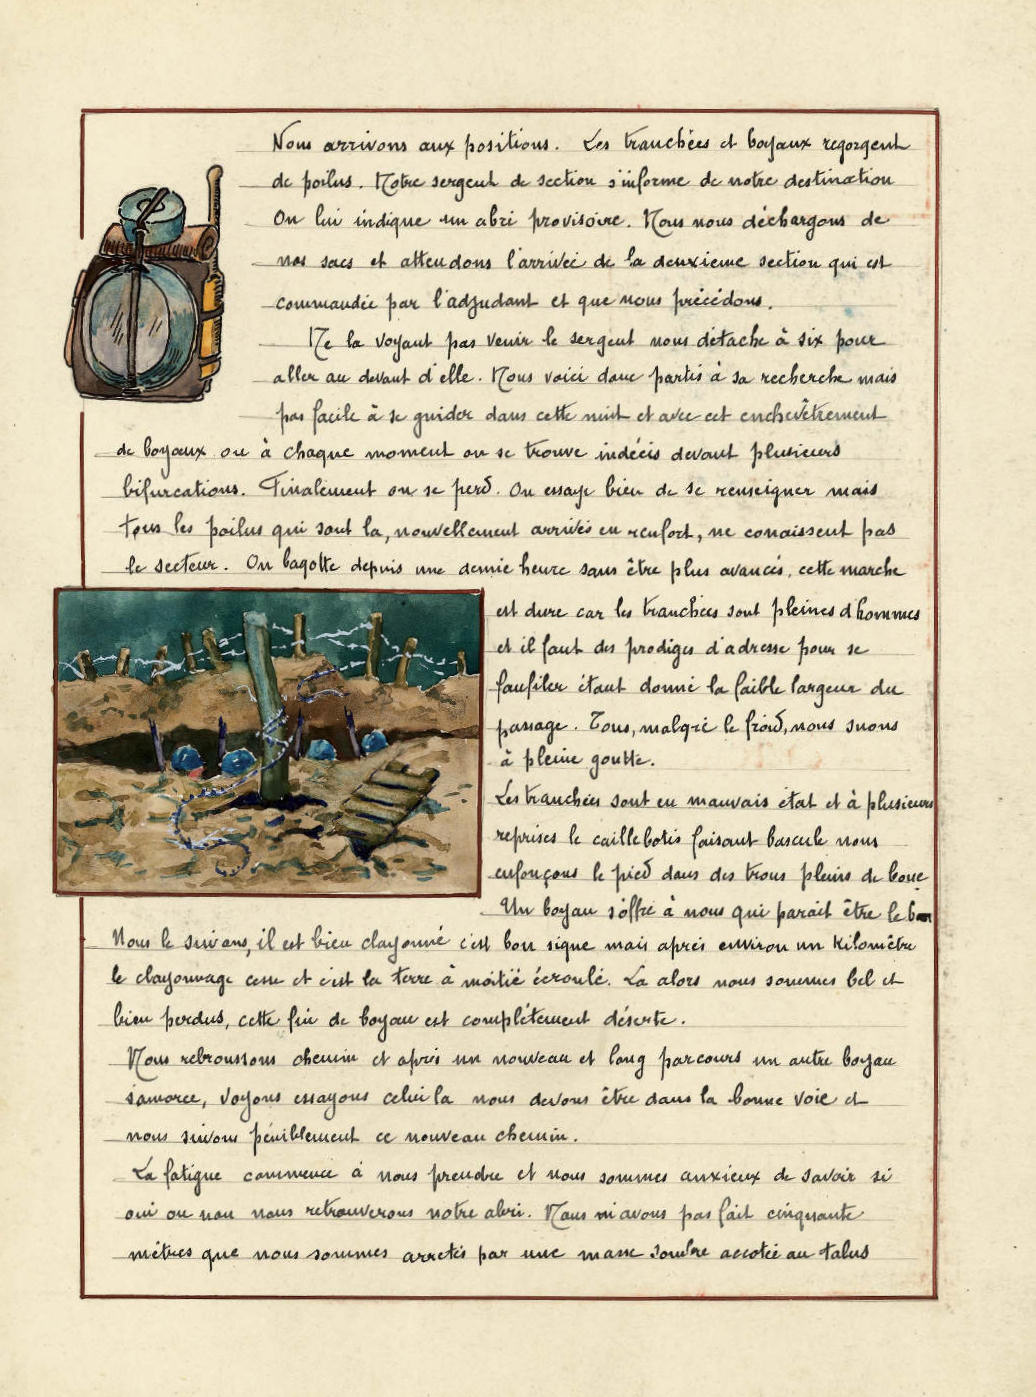 Nous arrivons aux positions. Les tranchées et boyaux regorgent
de poilus. Notre sergent de section s'informe de notre destination
On lui indique un abri provisoire. Nous nous déchargons de
nos sacs et attendons l'arrivée de la deuxième section qui est
commandée par l'adjudant et que nous précédons.
Ne la voyant pas venir le sergent nous détache à six pour
aller au devant d'elle. Nous voici donc partis à sa recherche mais
pas facile à se guider dans cette nuit et avec cet enchevêtrement
de boyaux ou à chaque moment on se trouve indécis devant plusieurs
bifurcations. Finalement on se perd. On essaye bien de se renseigner mais
tous les poilus qui sont la, nouvellement arrivés en renfort, ne conaissent pas
le secteur. On bagotte depuis une demie heure sans être plus avancés, cette marche
est dure car les tranchées sont pleines d'hommes
et il faut des prodiges d'adresse pour se
faufiler étant donné la faible largeur du
passage. Tous, malgré le froid, nous suons
à pleine goutte.
Les tranchées sont en mauvais état et à plusieurs
reprises le caillebotis faisant bascule nous
enfonçons le pied dans des trous pleins de boue
Un boyau s'offre à nous qui parait être le bon
Nous le suivons, il est bien clayonné c'est bon signe mais après environ un kilomètre
le clayonnage cesse et c'est la terre à moitié écroulé. La alors nous sommes bel et
bien perdus, cette fin de boyau est complètement déserte.
Nous rebroussons chemin et après un nouveau et long parcours un autre boyau
s'amorce, voyons essayons celui la nous devons être dans la bonne voie et
nous suivons péniblement ce nouveau chemin.
La fatigue commence à nous prendre et nous sommes anxieux de savoir si
oui ou non nous retrouverons notre abri. Nous n'avons pas fait cinquante
mètres que nous sommes arretés par une masse sombre accotée au talus